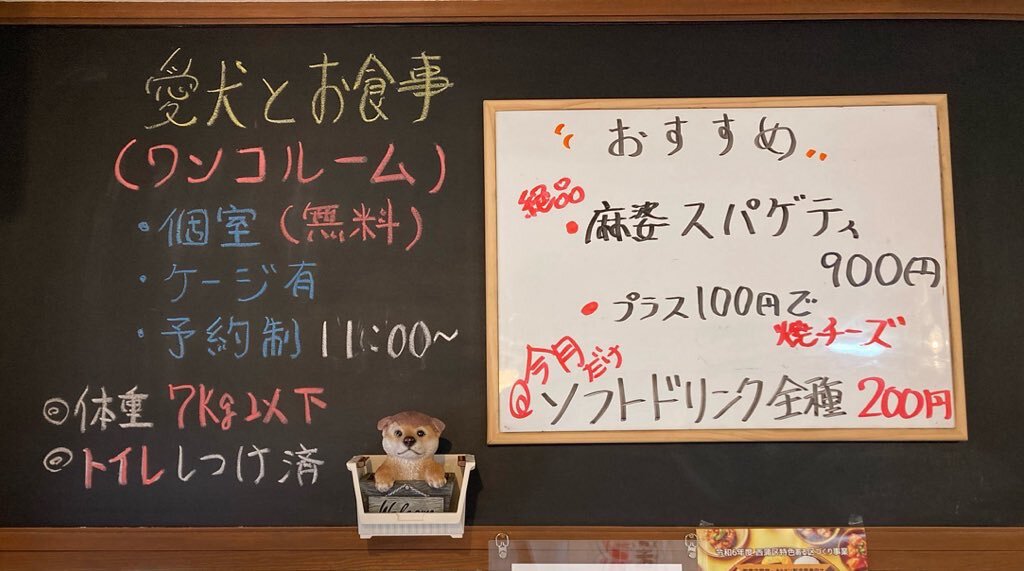 愛犬とお食事
(ワンコルーム)
・個室(無料)
・ケージ有
・予約制 11:00~
◎体重 7kg以下
◎トイレしつけ済
Welcome
おすすめ
絶品
・麻婆スパゲティ
900円
・プラス100円で
焼チーズ
今月だけ
◎ソフトドリンク全種 200円
令和6年度 西蒲区特色ある区づくり事業